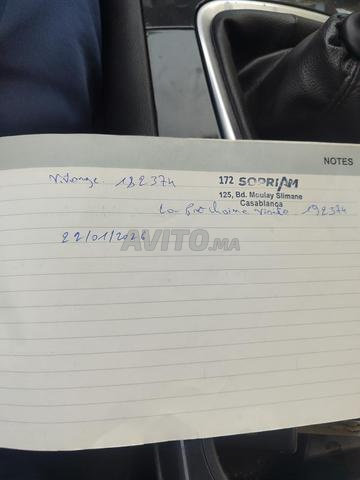 NOTES
Vidange 182374
172 SOPRIAM
125, Bd. Moulay Slimane
Casablanca
La prochaine visite 192374
22/01/2026
AVITO.MA